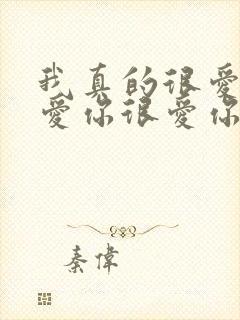 我真的很愛
愛你很愛你
秦偉